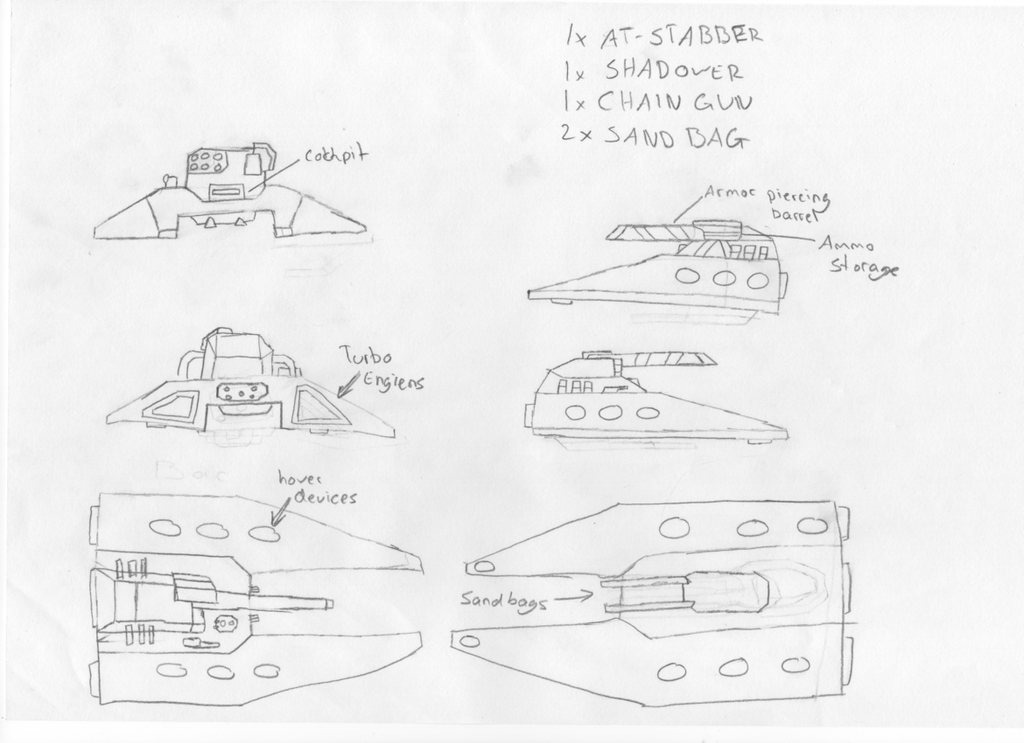 1x AT-STABBER
1x SHADOVER
1x CHAIN GUN
2x SAND BAG
cockpit
Armor piercing
barrel
Ammo
Storage
Turbo
Engiens
hover
devices
Sandbags